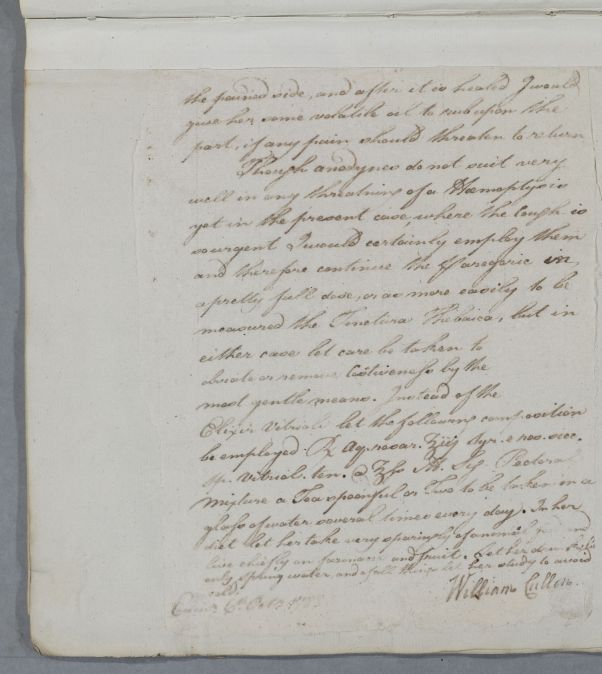 the pained side, and after it is healed I would
give her some volatile oil to rub upon the
part, if any pain should threaten to return
Though anodynes do not suit very
well in any threatning of a Hæmoptysis
yet in the present case, where the Cough is
so urgent I would certainly employ them
and therefore continue the Paregoric in
a pretty full dose, or as more easily to be
measured the Tinctura Thebaica, but in
either case let care be taken to
obviate or remove Costiveness by the
most gentle means. Instead of the
Elixir Vitrioli let the following composition
be employed ℞ Aq. rosar. ℥iij Syr. e ros. sicc.
Sp. Vitriol. ten. a ℥ſs M. Sig. Pectoral
Mixture a Teaspoonful or Two to be taken in a
glass of water several times every day. In her
diet let her take very sparingly of animal
live chiefly on farinacea and fruit. Let her drink
only spring water, and of all things let her study to avoid
cold.
William Cullen.
Edinr 6th Octr